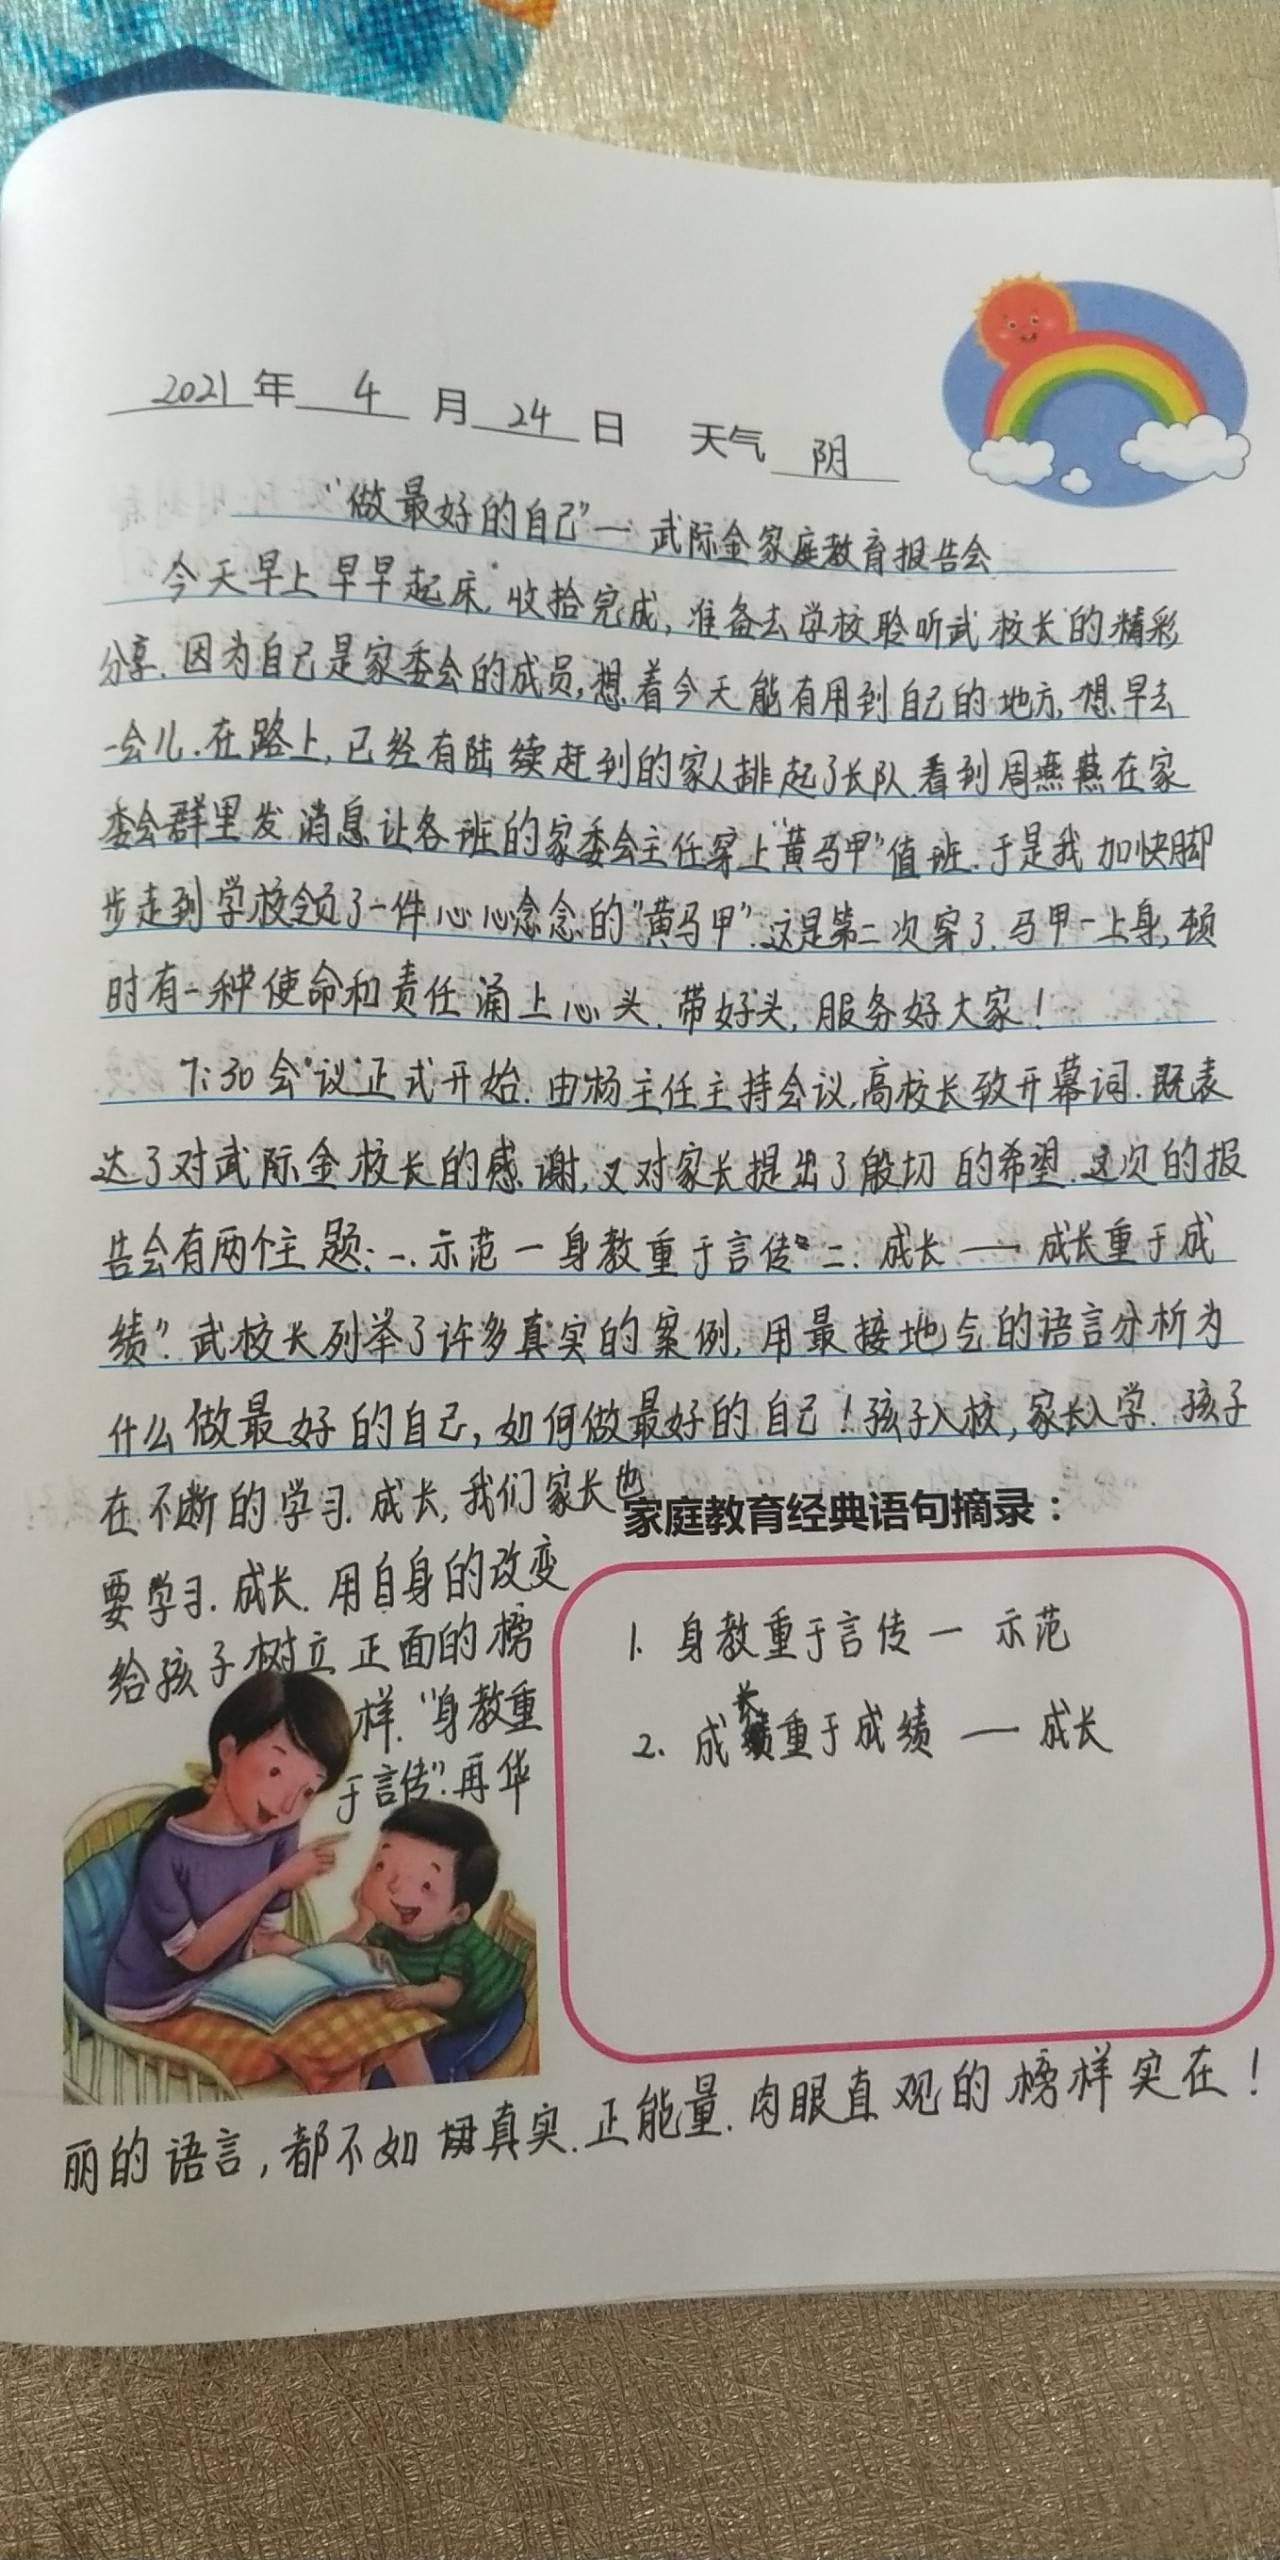 2021年 4 月 24 日 天气 阴
“做最好的自己”— 武际金家庭教育报告会
今天早上早早起床,收拾完成,准备去学校聆听武校长的精彩
分享.因为自己是家委会的成员,想着今天能有用到自己的地方,想早去
一会儿.在路上,已经有陆续赶到的家人排起了长队.看到周燕燕在家
委会群里发消息让各班的家委会主任穿上“黄马甲”值班.于是我加快脚
步走到学校领了一件心心念念的“黄马甲”.这是第二次穿了.马甲一上身,顿
时有一种使命和责任涌上心头.带好头,服务好大家!
7:30会议正式开始.由杨主任主持会议,高校长致开幕词.既表
达了对武际金校长的感谢,又对家长提出了殷切的希望.这次的报
告会有两个主题:一.示范—身教重于言传 二.成长——成长重于成
绩”.武校长列举了许多真实的案例,用最接地气的语言分析为
什么做最好的自己,如何做最好的自己!孩子入校,家长入学.孩子
在不断的学习.成长,我们家长也
要学习.成长.用自身的改变
给孩子树立正面的榜
样.“身教重
于言传”.再华
丽的语言,都不如真实.正能量.肉眼直观的榜样实在!
家庭教育经典语句摘录：
1. 身教重于言传 — 示范
2. 成长重于成绩 —— 成长